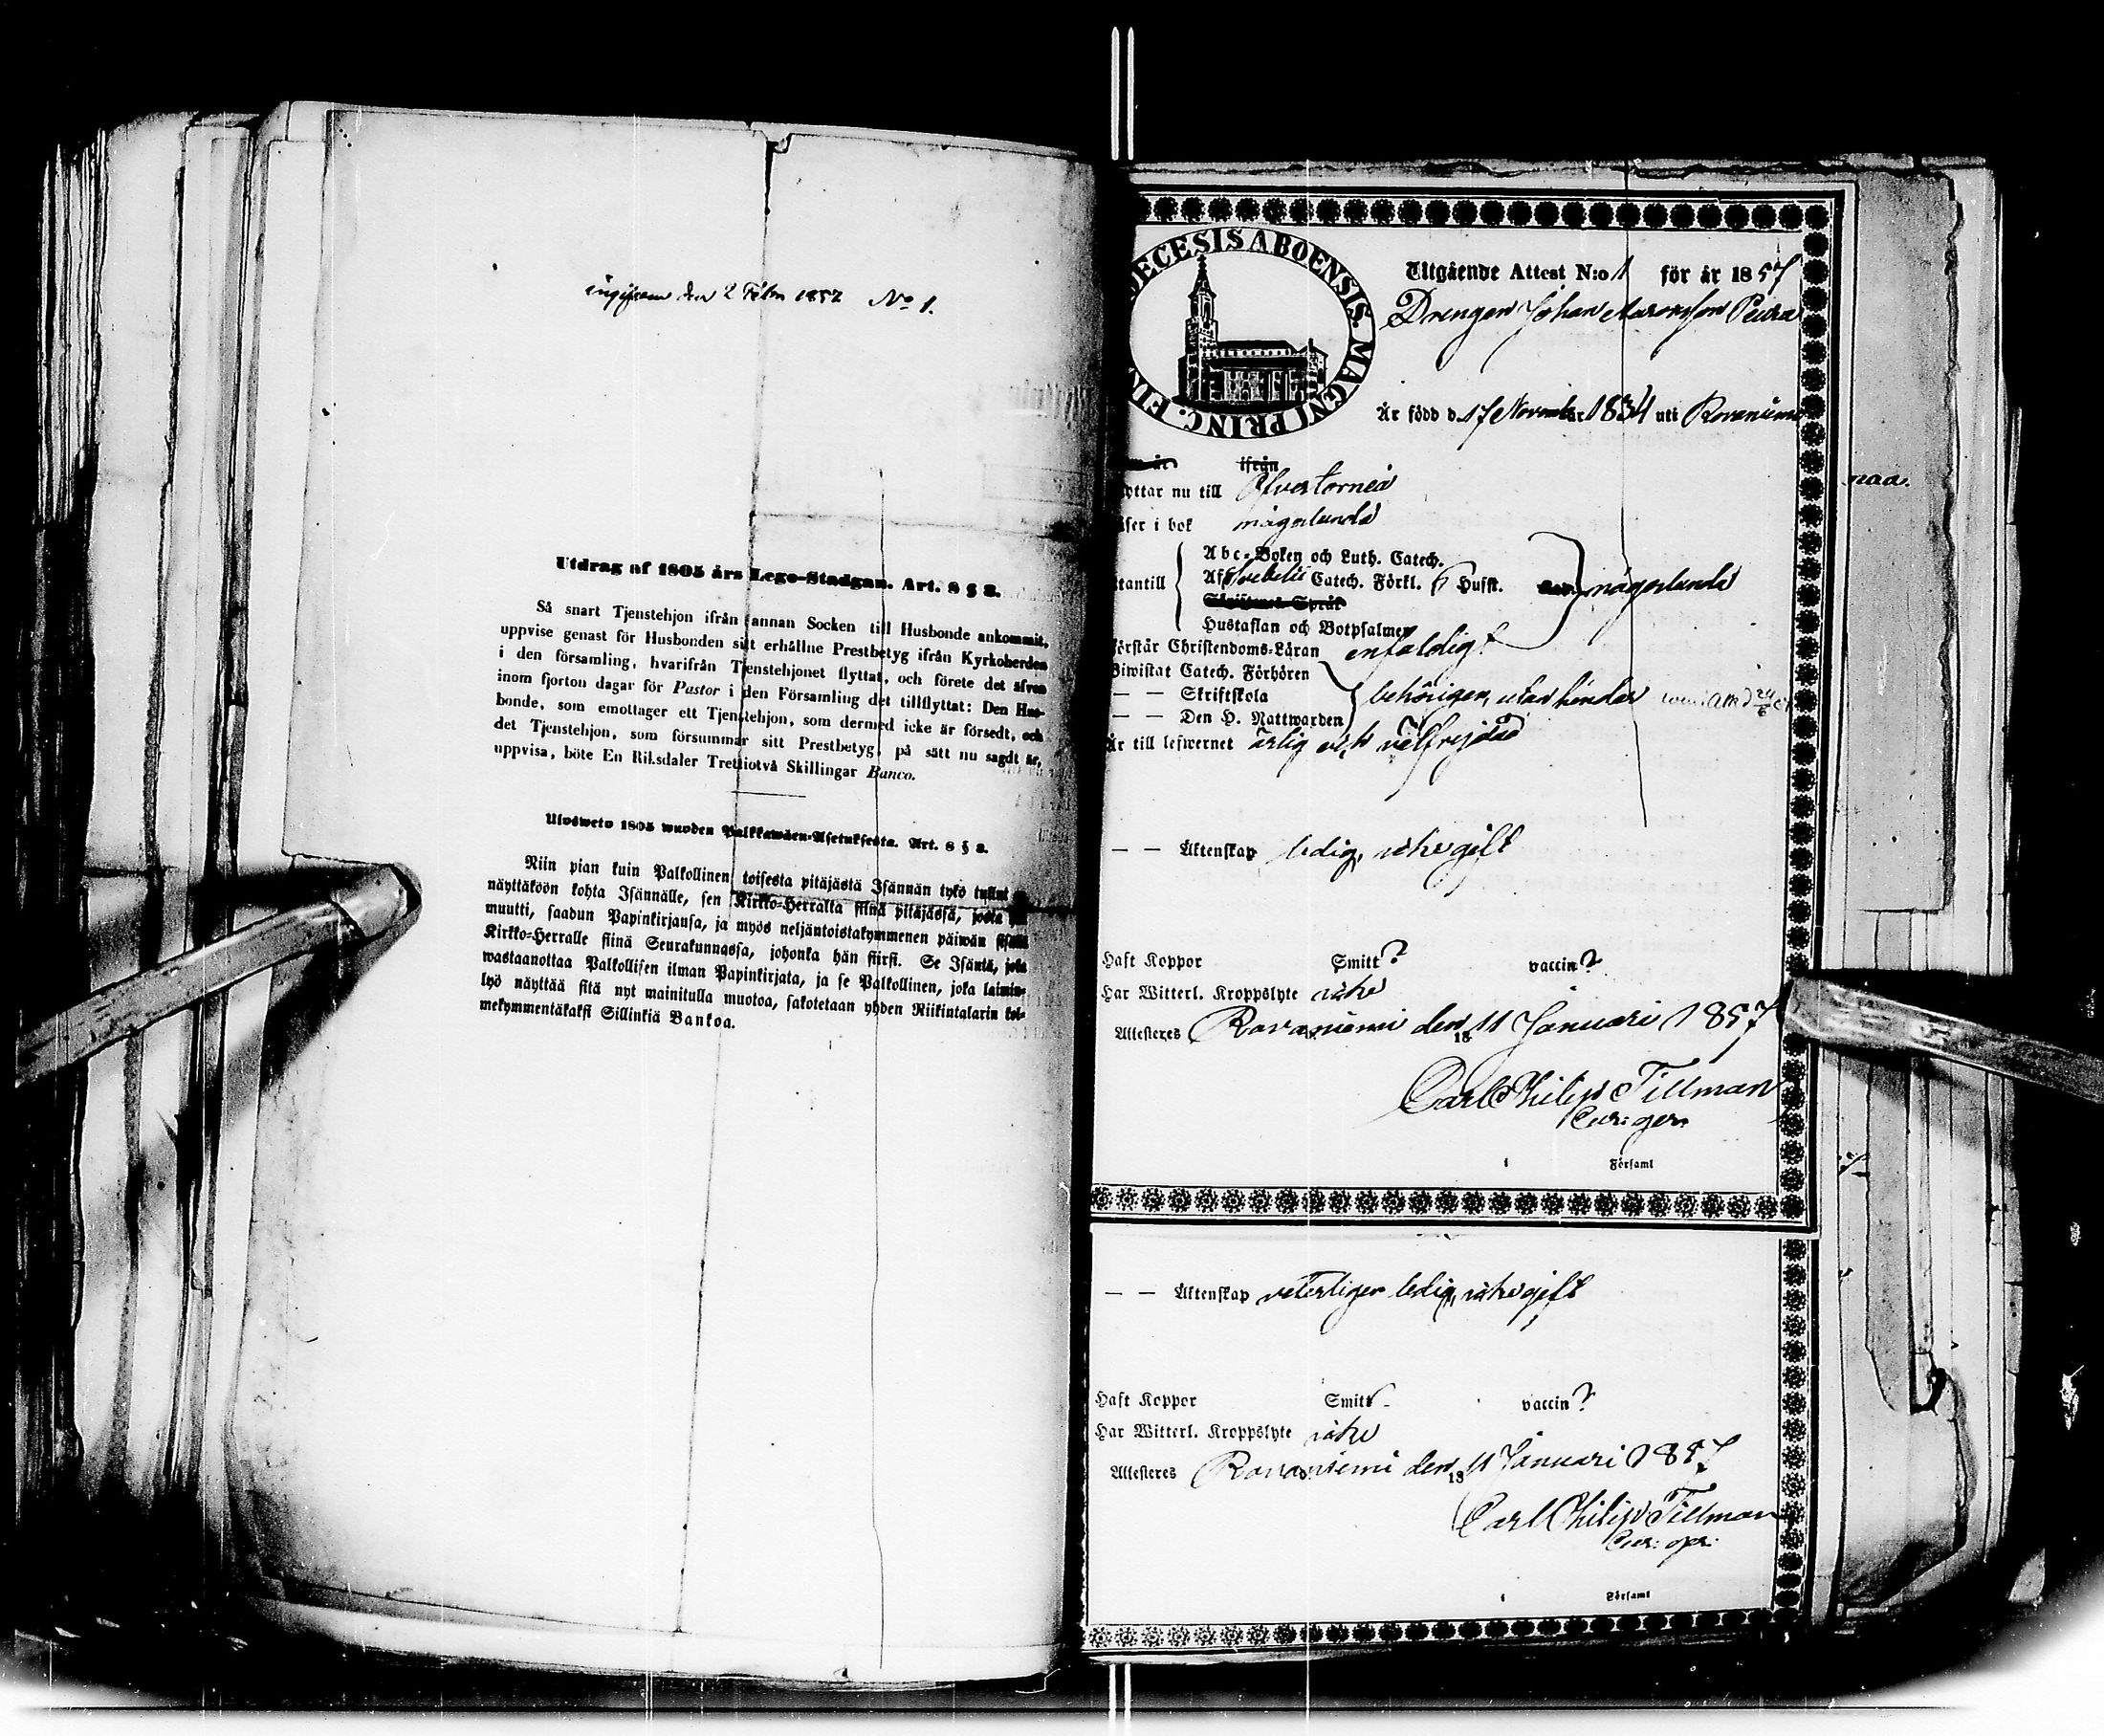 den 2 Febr 1857 No 1.
Utdrag af 1805 års Lego-Stadgan. Art. 8 § 2.
Så snart Tjenstehjon ifrån annan Socken till Husbonde ankommit,
uppvise genast för Husbonden sitt erhållne Prestbetyg ifrån Kyrkoherden
i den församling, hvarifrån Tjenstehjonet flyttat, och förete det äfven
inom fjorton dagar för Pastor i den Församling det tillflyttat: Den Hus-
bonde, som emottager ett Tjenstehjon, som dermed icke är försedt, och
det Tjenstehjon, som försummar sitt Prestbetyg, på sätt nu sagdt är,
uppvisa, böte En Riksdaler Trettiotvå Skillingar Banco.
Ulosweto 1805 wuoden Palkkawäen-Asetuksesta. Art. 8 § 2.
Niin pian kuin Palkollinen toisesta pitäjästä Isännän tykö tullut
näyttäköön kohta Isännälle, sen Kirkko-Herralta siinä pitäjässä, josta
muutti, saadun Papinkirjansa, ja myös neljäntoistakymmenen päiwän sisällä
Kirkko-Herralle siinä Seurakunnassa, johonka hän siirsi. Se Isäntä, joka
wastaanottaa Palkollisen ilman Papinkirjata, ja se Palkollinen, joka laimin-
lyö näyttää sitä nyt mainitulla muotoa, sakotetaan yhden Riikintalarin kol-
mekymmentäkaksi Sillinkiä Bankoa.
ECESIS ABOENSIS. MAGNI PRINC. FIN
Utgående Attest N:o 1 för år 1857
Drengen Johan Aaronsson Peura
Är född d. 17 November 1834 uti Rovaniemi
ifrån
yttar nu till Öfvertorneå
äser i bok någorlunda
Abc-Boken och Luth. Catech.
utantill Svebelii Catech. Förkl. Hufst. någorlunda
Språk
Hustaflan och Botpsalmer
Förstår Christendoms-Läran enfaldigt
Biwistat Catech. Förhören
— — Skriftskola behörigen, utan hinder
— — Den H. Nattwarden
Är till lefwernet ärlig och välfrejdad
— — Äktenskap ledig, icke gift
Haft Koppor Smitt ? vaccin ?
Har Witterl. Kroppslyte icke
Attesteres Rovaniemi den 11 Januari 1857
18
Carl Philip Tillman
i Församl
— — Äktenskap veterligen ledig, icke gift
Haft Koppor Smitt vaccin ?
Har Witterl. Kroppslyte icke
Attesteres Rovaniemi den 11 Januari 1857
18
Carl Philip Tillman
i Församl
naa.